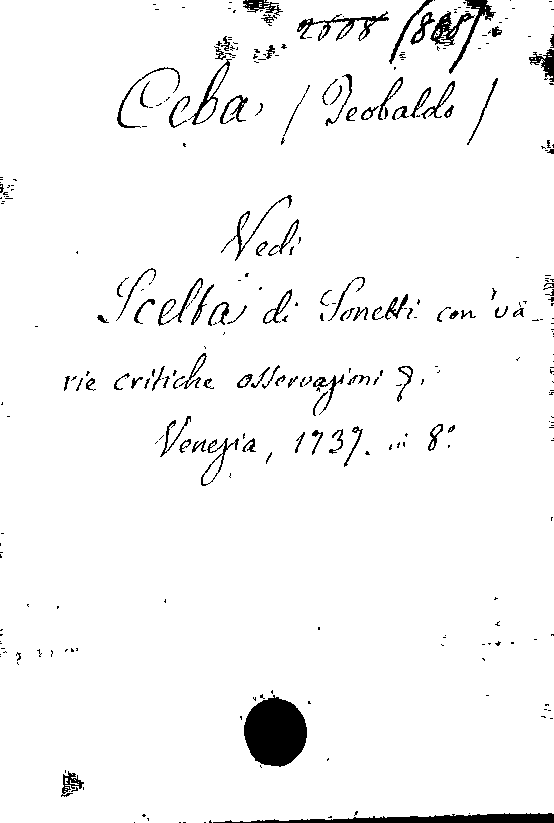 2608 (868)
Ceba, (Teobaldo)
Vedi
Scelta di Sonetti con va-
rie critiche osservazioni &.
Venezia, 1737. in 8°